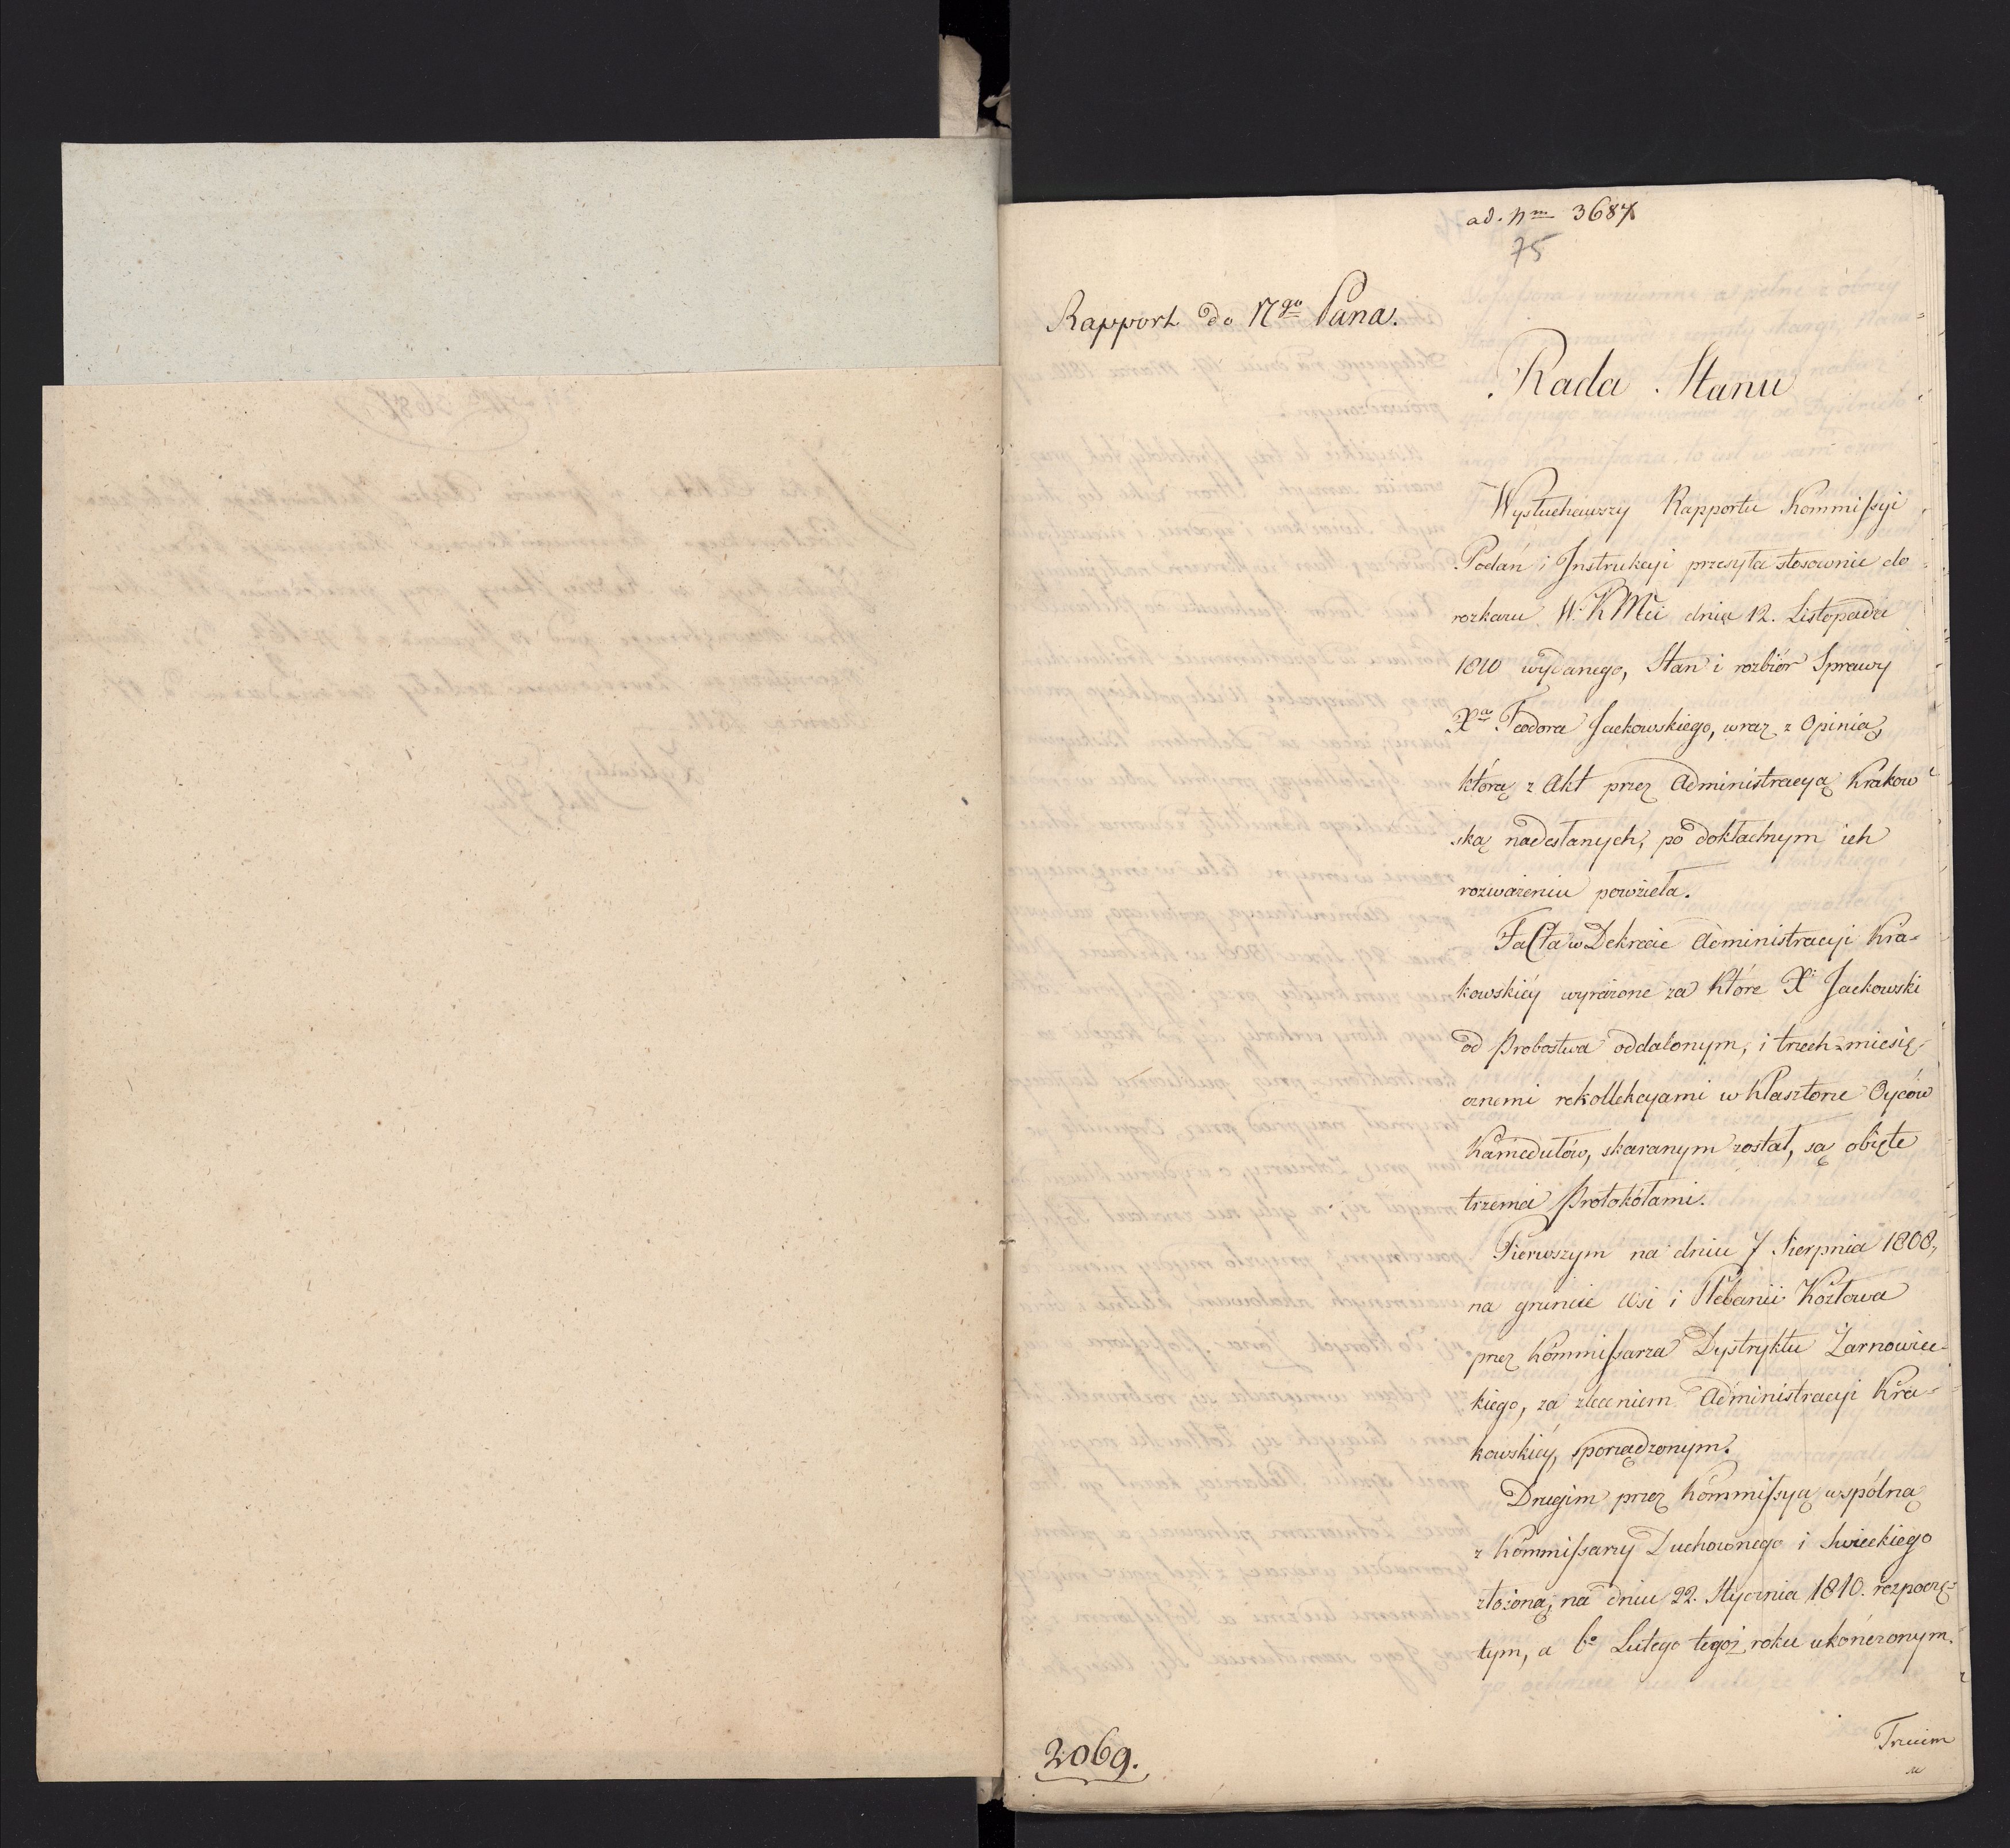 ad. Nm 3687
75
Rapport do Ngo Pana.
Rada Stanu
Wysłuchawszy Rapportu Kommissyi
Podań i Instrukcyi przesyła stosownie do
rozkazu W. K Mci dnia 12. Listopada
1810 wydanego, Stan i rozbiór Sprawy
Xa Teodora Jackowskiego, wraz z Opinią,
którą z Akt przez Administracyą Krakow
ską nadesłanych, po dokładnym ich
rozważeniu powzieła.
Facta w Dekrecie Administracyi Kra-
kowskiéy wyrażone za które X. Jackowski
od Probostwa oddalonym, i trzech-miesię-
cznemi rekollekcyami w Klasztorze Oyców
Kamedułów, skaranym został, są obięte
trzema Protokółami.
Pierwszym na dniu 7 Sierpnia 1808,
na gruncie Wsi i Plebanii Kozłowa
przez Kommissarza Dystryktu Zarnowiec-
kiego, za zleceniem Administracyi Kra-
kowskiéy, sporządzonym.
Drugim przez Kommissyą wspólną
z Kommissarzy Duchownego i Swieckiego
złożoną, na dniu 22. Stycznia 1810. rozpoczę-
tym, a 6o Lutego tegoż roku ukończonym.
Trzecim
2069.